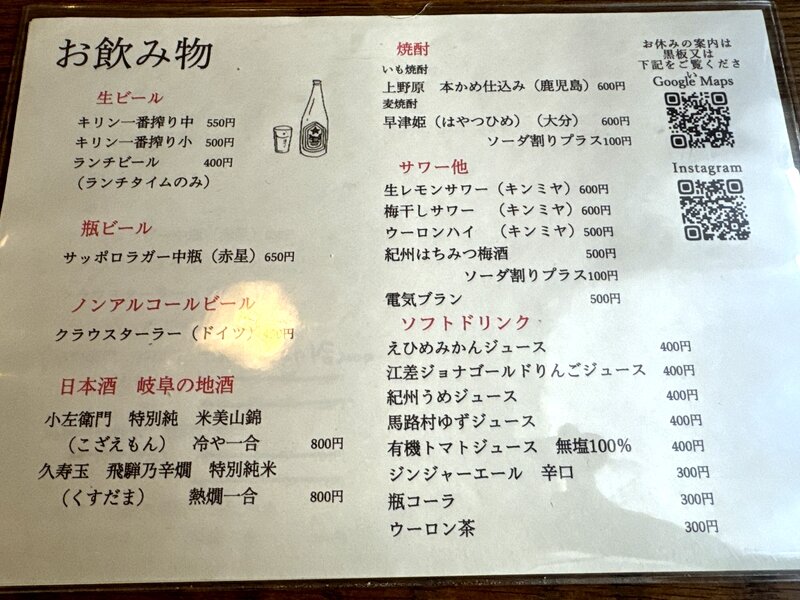 お飲み物
生ビール
キリン一番搾り中 550円
キリン一番搾り小 500円
ランチビール 400円
（ランチタイムのみ）
瓶ビール
サッポロラガー中瓶（赤星）650円
ノンアルコールビール
クラウスターラー（ドイツ） 円
日本酒 岐阜の地酒
小左衛門 特別純 米美山錦
（こざえもん） 冷や一合 800円
久寿玉 飛騨乃辛燗 特別純米
（くすだま） 熱燗一合 800円
焼酎
いも焼酎
上野原 本かめ仕込み（鹿児島）600円
麦焼酎
早津姫（はやつひめ）（大分） 600円
ソーダ割りプラス100円
サワー他
生レモンサワー（キンミヤ）600円
梅干しサワー （キンミヤ）600円
ウーロンハイ （キンミヤ）500円
紀州はちみつ梅酒 500円
ソーダ割りプラス100円
電気ブラン 500円
ソフトドリンク
えひめみかんジュース 400円
江差ジョナゴールドりんごジュース 400円
紀州うめジュース 400円
馬路村ゆずジュース 400円
有機トマトジュース 無塩100% 400円
ジンジャーエール 辛口 300円
瓶コーラ 300円
ウーロン茶 300円
お休みの案内は
黒板又は
下記をご覧くださ
い
Google Maps
Instagram